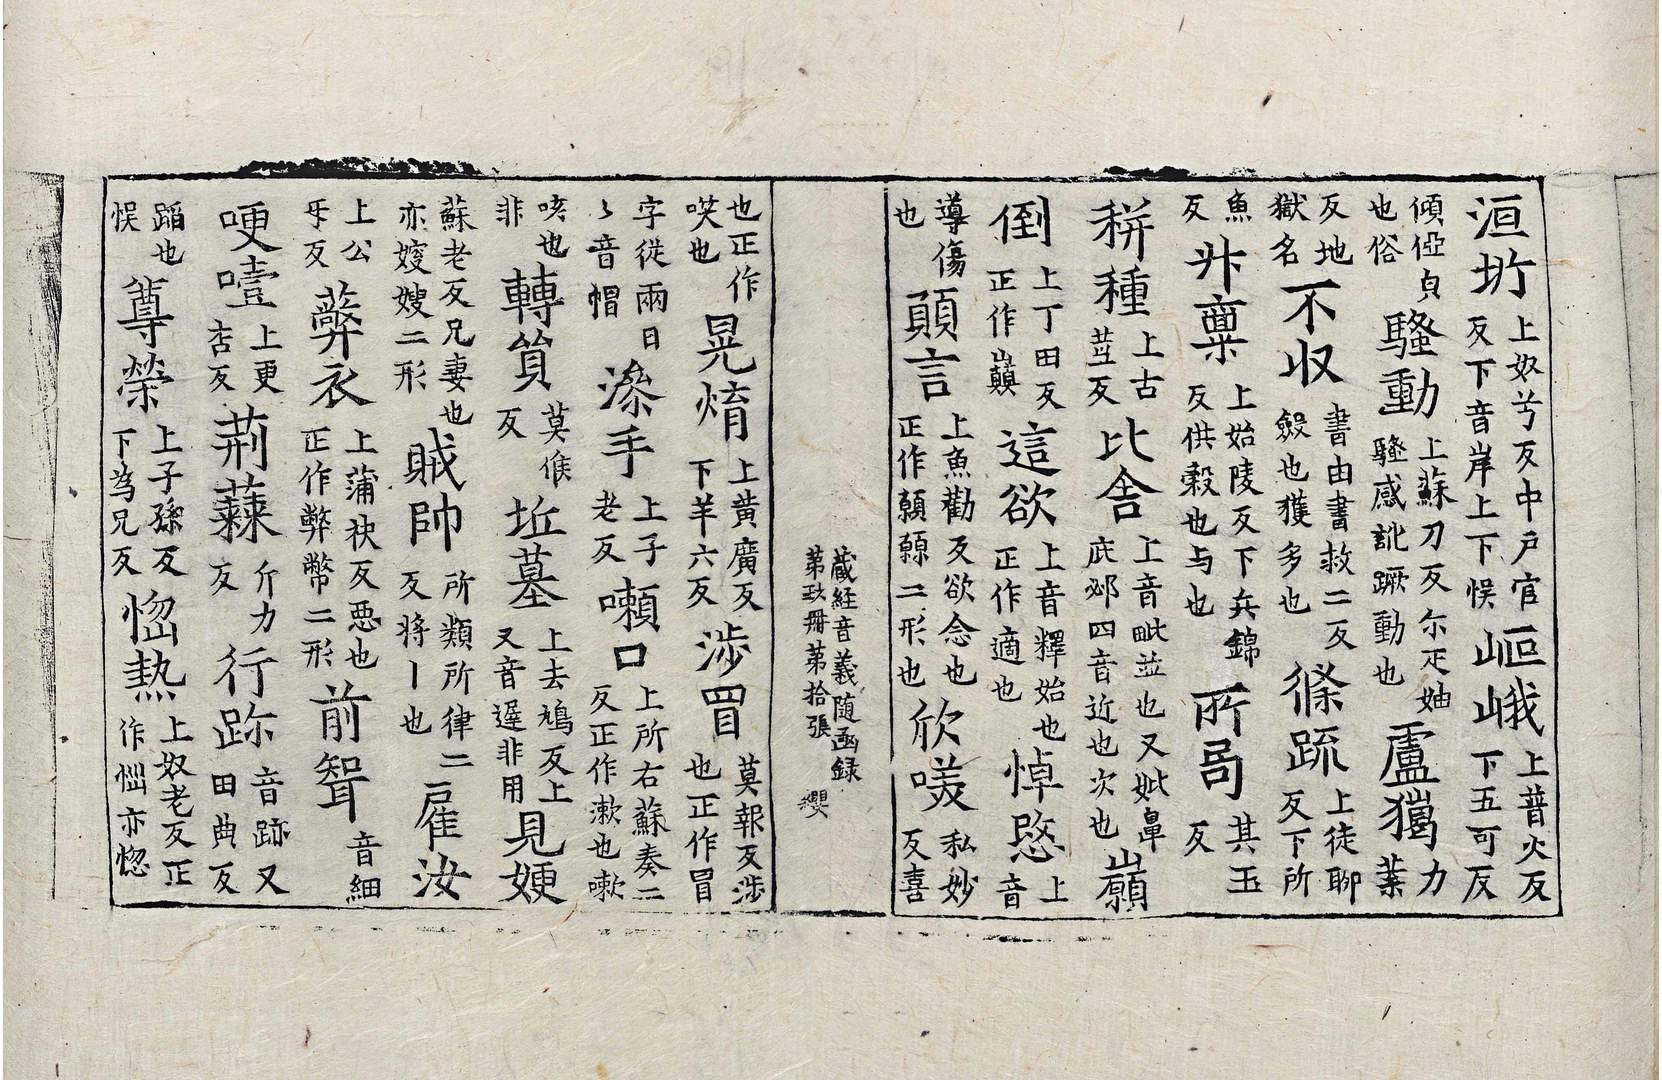 洹圻上奴兮反中戶官反下音岸上下悮岖峨上普火反下五可反
傾俹貞也俗騷動上蘇刀反尓疋妯騷感訛蹶動也盧獦力葉
反地獄名不収書由書救二反斂也獲多也絛䟽上徒聊反下所
魚反舛稟上始陵反下兵錦反供糓也与也所局其玉反
秼種上古莖反比舍上音毗並也又妣鼻庇邲四音近也次也巔
倒上丁田反正作巔這欲上音釋始也正作適也悼愍上音
導傷也願言上魚勸反欲念也正作願䫟二形也欣㗛私妙反喜
蔵經音義随函録
第玖冊第拾張 纓
也正作㗛也晃焴上黃廣反下羊六反渉冐莫報反渉也正作冐
字從兩日〻音帽澡手上子老反嗽口上所右蘇奏二反正作漱也嗽
咳也非轉貿莫候反坵墓上去鳩反上又音遟非用見㛐
蘇老反兄妻也亦㛮嫂二形賊帥所類所律二反將丨也雇汝
上公乎反弊衣上蒲袂反惡也正作弊幣二形前聟音細
哽噎上更杏反荊蕀斤力反行跡音跡又田典反
蹈也悮尊榮上子孫反下為兄反惱熱上奴老反正作㛴亦惱